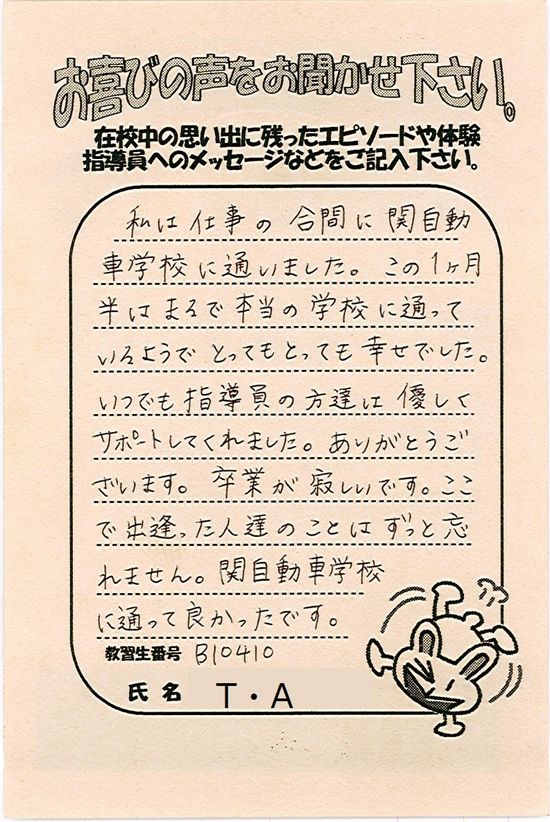 お喜びの声をお聞かせ下さい。
在校中の思い出に残ったエピソードや体験
指導員へのメッセージなどをご記入下さい。
私は仕事の合間に関自動
車学校に通いました。この1ヶ月
半はまるで本当の学校に通って
いるようでとってもとっても幸せでした。
いつでも指導員の方達は優しく
サポートしてくれました。ありがとうご
ざいます。卒業が寂しいです。ここ
で出逢った人達のことはずっと忘
れません。関自動車学校
に通って良かったです。
教習生番号 B10410
氏名 T・A